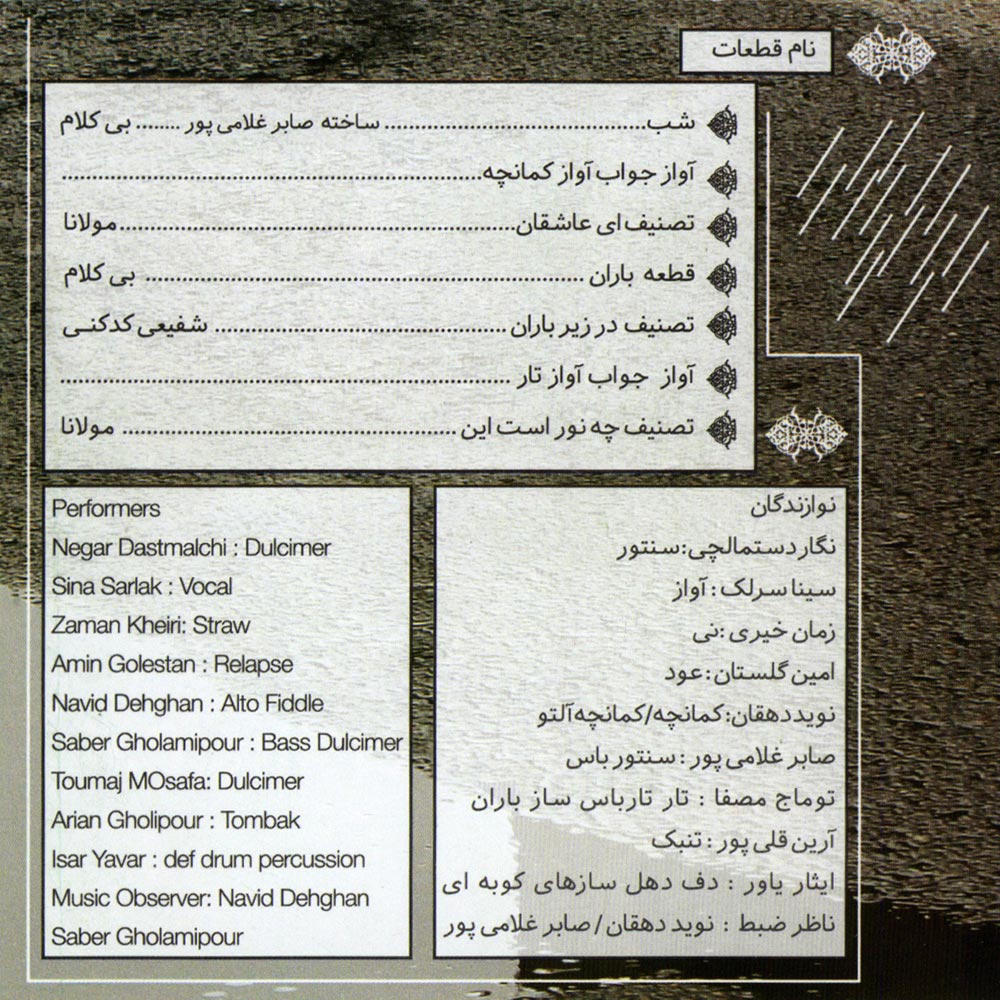 نام قطعات
شب............................................ساخته صابر غلامی پور ....... بی کلام
آواز جواب آواز کمانچه......................................................................
تصنیف ای عاشقان..................................................................مولانا
قطعه باران ......................................................................... بی کلام
تصنیف در زیر باران ................................................ شفیعی کدکنی
آواز جواب آواز تار ...........................................................................
تصنیف چه نور است این........................................................ مولانا
نوازندگان
نگار دستمالچی:سنتور
سینا سرلک : آواز
زمان خیری :نی
امین گلستان:عود
نوید دهقان: کمانچه/کمانچه آلتو
صابر غلامی پور : سنتور باس
توماج مصفا : تار تارباس ساز باران
آرین قلی پور : تنبک
ایثار یاور : دف دهل سازهای کوبه ای
ناظر ضبط : نوید دهقان / صابر غلامی پور
Performers
Negar Dastmalchi : Dulcimer
Sina Sarlak : Vocal
Zaman Kheiri: Straw
Amin Golestan : Relapse
Navid Dehghan : Alto Fiddle
Saber Gholamipour : Bass Dulcimer
Toumaj MOsafa: Dulcimer
Arian Gholipour : Tombak
Isar Yavar : def drum percussion
Music Observer: Navid Dehghan
Saber Gholamipour